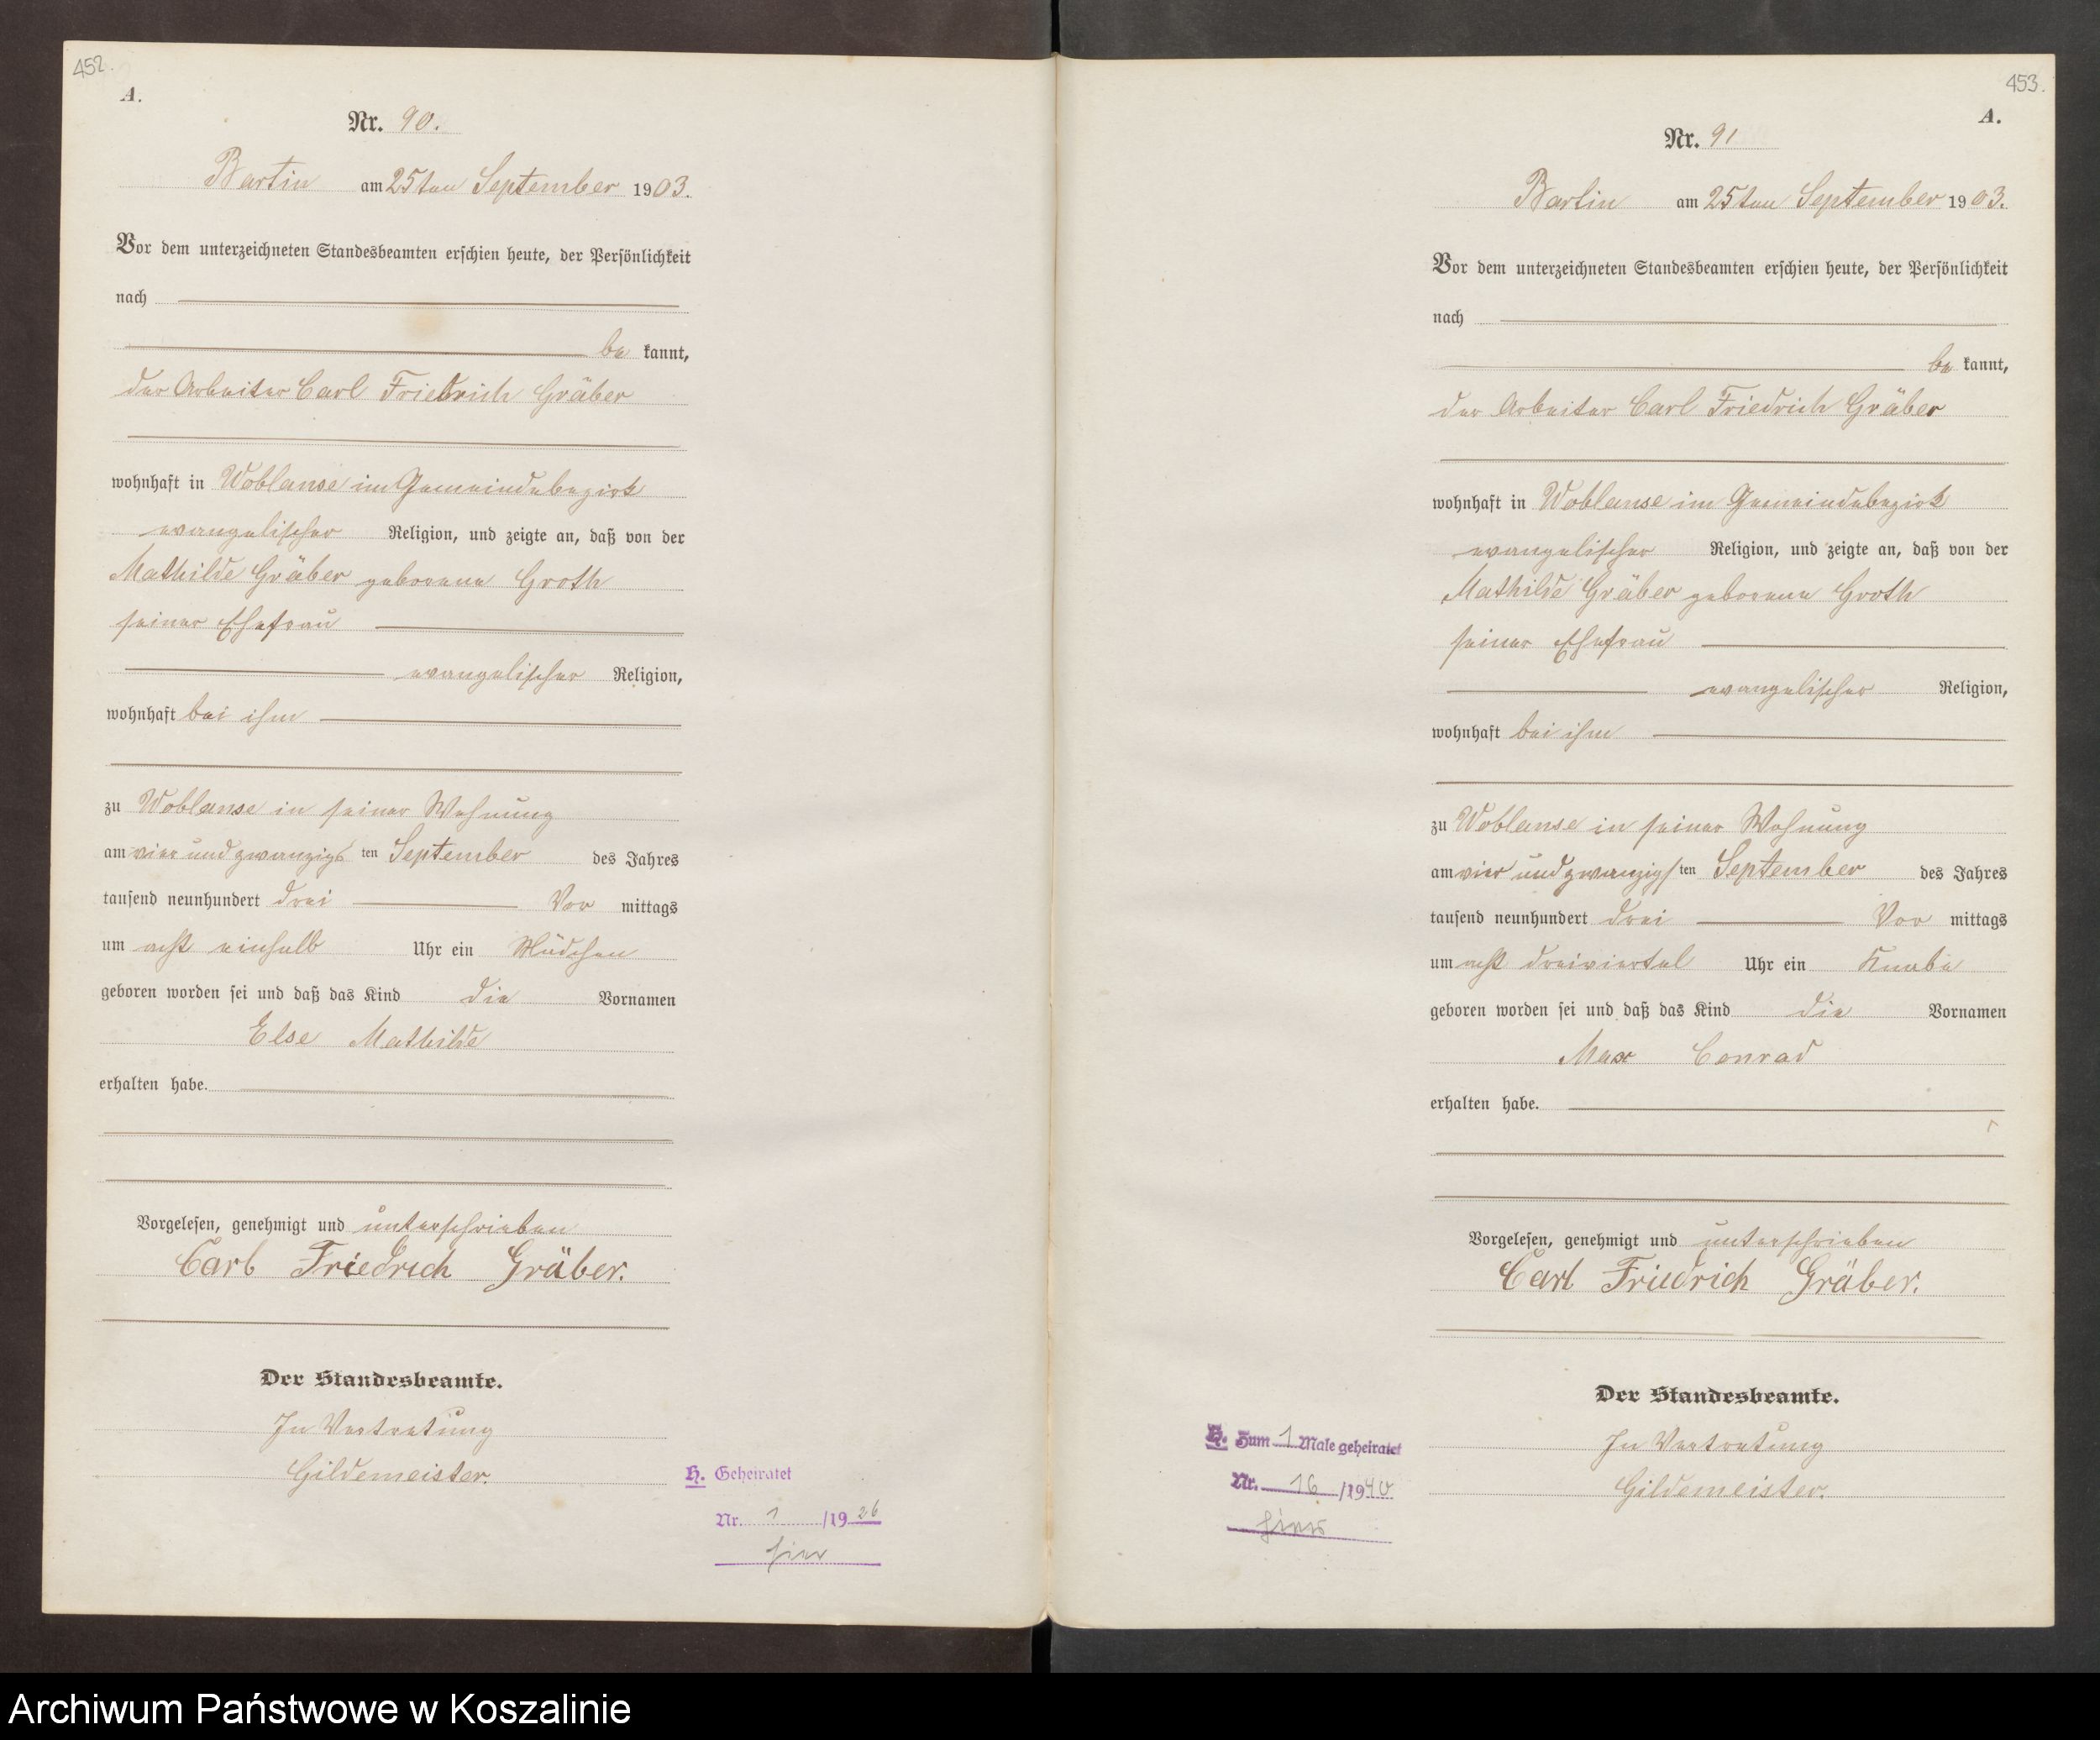 452.
A.
Nr. 90.
Bartin am 25ten September 1903.
Vor dem unterzeichneten Standesbeamten erschien heute, der Persönlichkeit
nach
be kannt,
der Arbeiter Carl Friedrich Gräber
wohnhaft in Woblanse im Gemeindebezirk
evangelischer Religion, und zeigte an, daß von der
Mathilde Gräber geborene Groth
seiner Ehefrau
evangelischer Religion,
wohnhaft bei ihm
zu Woblanse in seiner Wohnung
am vier und zwanzigs ten September des Jahres
tausend neunhundert drei Vor mittags
um acht einhalb Uhr ein Mädchen
geboren worden sei und daß das Kind die Vornamen
Else Mathilde
erhalten habe.
Vorgelesen, genehmigt und unterschrieben
Carl Friedrich Gräber.
Der Standesbeamte.
In Vertretung
Gildemeister.
H. Geheiratet
Nr. 1 /1926
hier
453.
A.
Nr. 91
Bartin am 25ten September 1903.
Vor dem unterzeichneten Standesbeamten erschien heute, der Persönlichkeit
nach
be kannt,
der Arbeiter Carl Friedrich Gräber
wohnhaft in Woblanse im Gemeindebezirk
evangelischer Religion, und zeigte an, daß von der
Mathilde Gräber geborene Groth
seiner Ehefrau
evangelischer Religion,
wohnhaft bei ihm
zu Woblanse in seiner Wohnung
am vier und zwanzigs ten September des Jahres
tausend neunhundert drei Vor mittags
um acht dreiviertel Uhr ein Knabe
geboren worden sei und daß das Kind die Vornamen
Max Conrad
erhalten habe.
Vorgelesen, genehmigt und unterschrieben
Carl Friedrich Gräber.
Der Standesbeamte.
In Vertretung
Gildemeister.
H. Zum 1 Male geheiratet
Nr. 16 /1940
hier
Archiwum Państwowe w Koszalinie